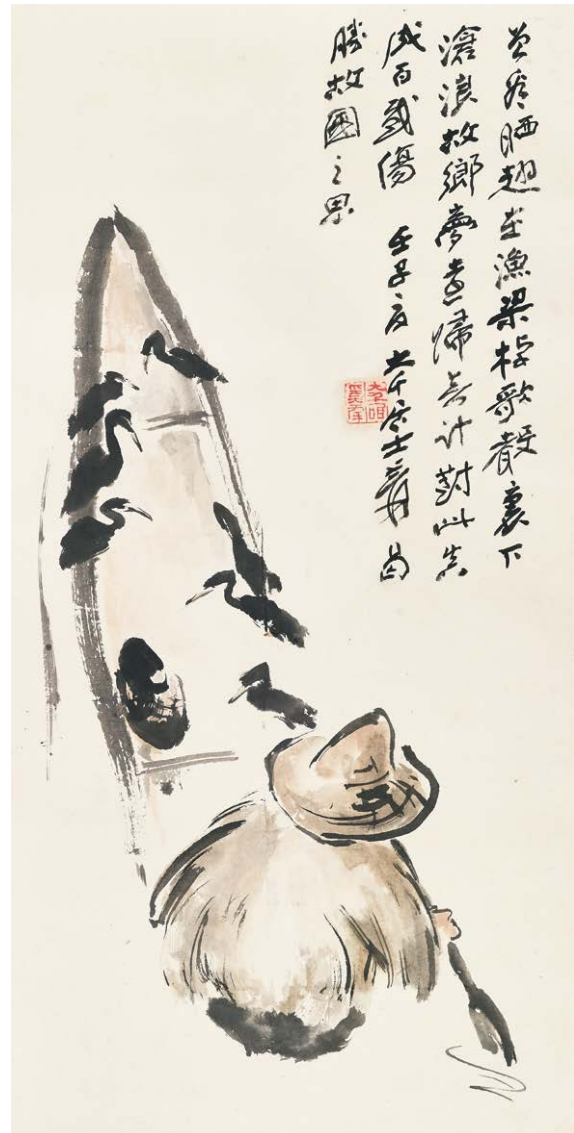 曾看晒翅漁梁棹歌聲裏下
滄浪故鄉夢遠歸無計對此真
成百感傷 壬子夏大千居士爰 曷
勝故國之思